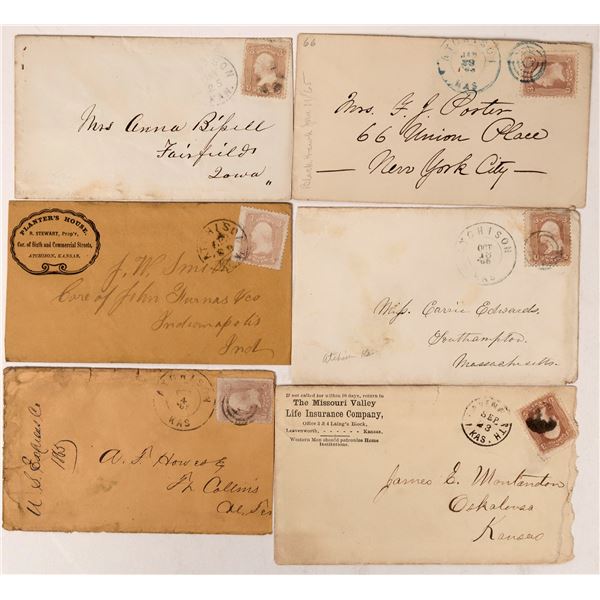 Mrs Anna Bissell
Fairfield
Iowa
66
ATCHISON
KAS
Mrs. F. J. Porter
66 Union Place
New York City
PLANTER'S HOUSE,
R. STEWART, Prop'r,
Cor. of Sixth and Commercial Streets,
ATCHISON, KANSAS.
ATCHISON
J. W. Smith
Care of John Furnas & co
Indianapolis
Ind
ATCHISON
OCT
KAS
Miss Carrie Edwards,
Southampton,
Massachusetts.
KAS
U. S. Express Co
1865
A. F. Howes
Ft. Collins
If not called for within 10 days, return to
The Missouri Valley
Life Insurance Company,
Office 2 & 4 Laing's Block,
Leavenworth, - - - - - - Kansas.
Western Men should patronize Home
Institutions.
SEP
KAS.
James E. Montandon
Oskaloosa
Kansas